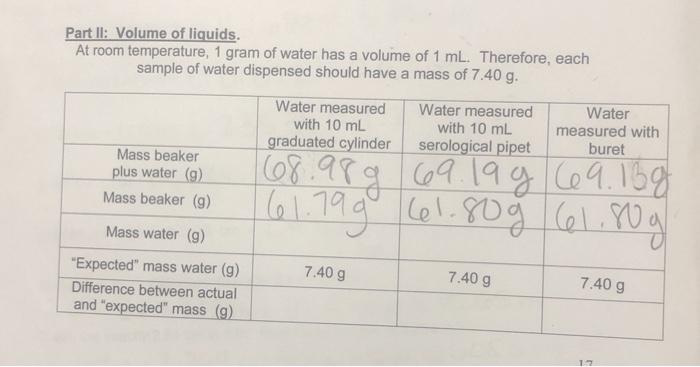 Part II: Volume of liquids.
At room temperature, 1 gram of water has a volume of 1 mL. Therefore, each
sample of water dispensed should have a mass of 7.40 g.
Water measured with 10 mL graduated cylinder
Water measured with 10 mL serological pipet
Water measured with buret
Mass beaker plus water (g) 68.98g 69.19g 69.13g
Mass beaker (g) 61.79g 61.80g 61.80g
Mass water (g)
"Expected" mass water (g) 7.40 g 7.40 g 7.40 g
Difference between actual and "expected" mass (g)
17